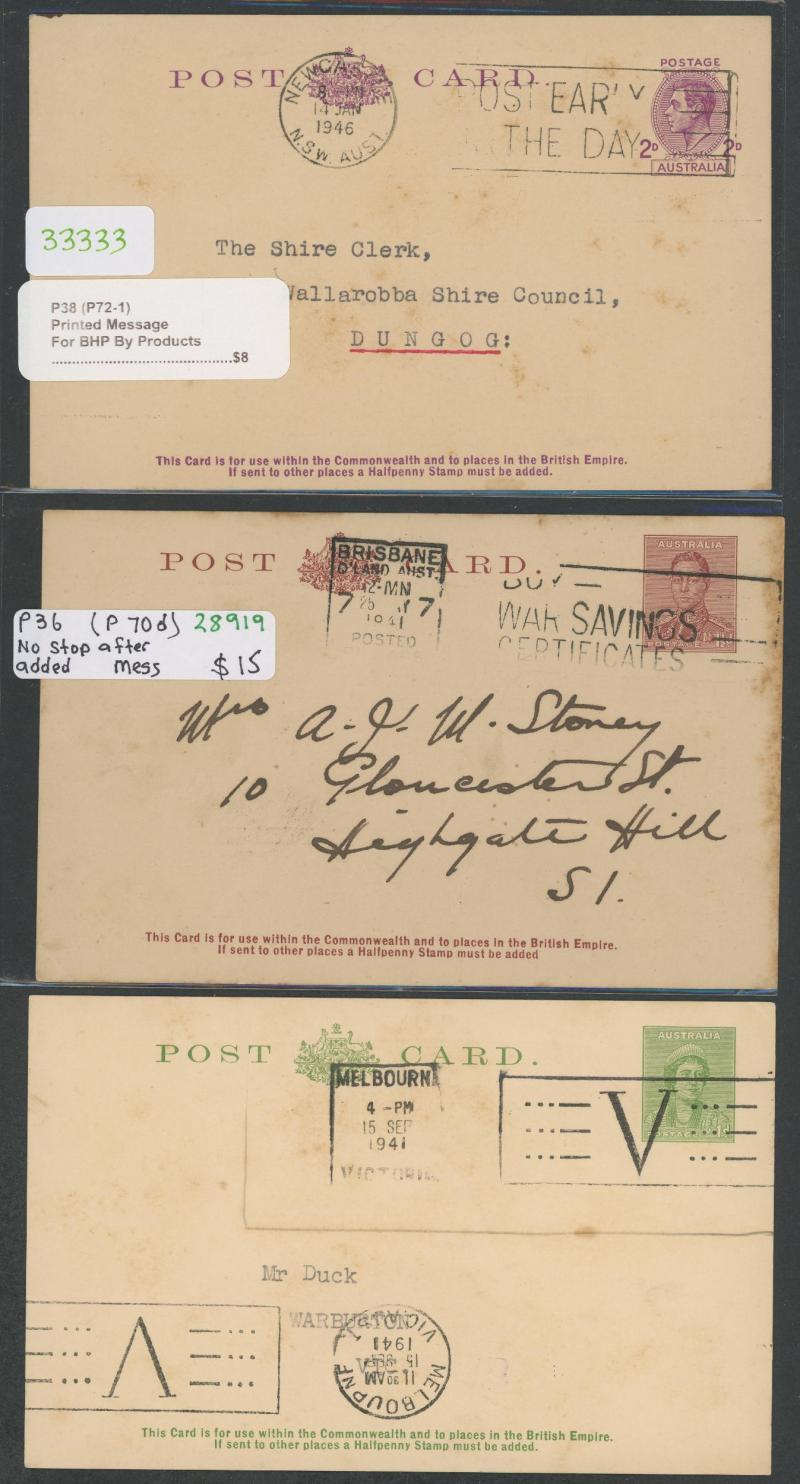 POST CARD.
POSTAGE
2D 2D
AUSTRALIA
NEWCASTLE
8 - PM
14 JAN
1946
N.S.W. AUST.
POST EARLY
IN THE DAY
33333
The Shire Clerk,
Wallarobba Shire Council,
DUNGOG:
P38 (P72-1)
Printed Message
For BHP By Products
$8
This Card is for use within the Commonwealth and to places in the British Empire.
If sent to other places a Halfpenny Stamp must be added.
POST CARD.
AUSTRALIA
POSTAGE
BRISBANE
Q'LAND AUST.
12-MN
7 25 7
1941
POSTED
BUY
WAR SAVINGS
CERTIFICATES
P36 (P70d) 28919
No stop after
added mess $15
Mrs A. J. M. Stoney
10 Gloucester St.
Highgate Hill
S1.
This Card is for use within the Commonwealth and to places in the British Empire.
If sent to other places a Halfpenny Stamp must be added
POST CARD.
AUSTRALIA
POSTAGE
MELBOURNE
4 -PM
15 SEP
1941
VICTORIA
V
Mr Duck
WARBURTON
VIC.
V
MELBOURNE
11 30 AM
15 SEP
1941
VIC. AUST
This Card is for use within the Commonwealth and to places in the British Empire.
If sent to other places a Halfpenny Stamp must be added.